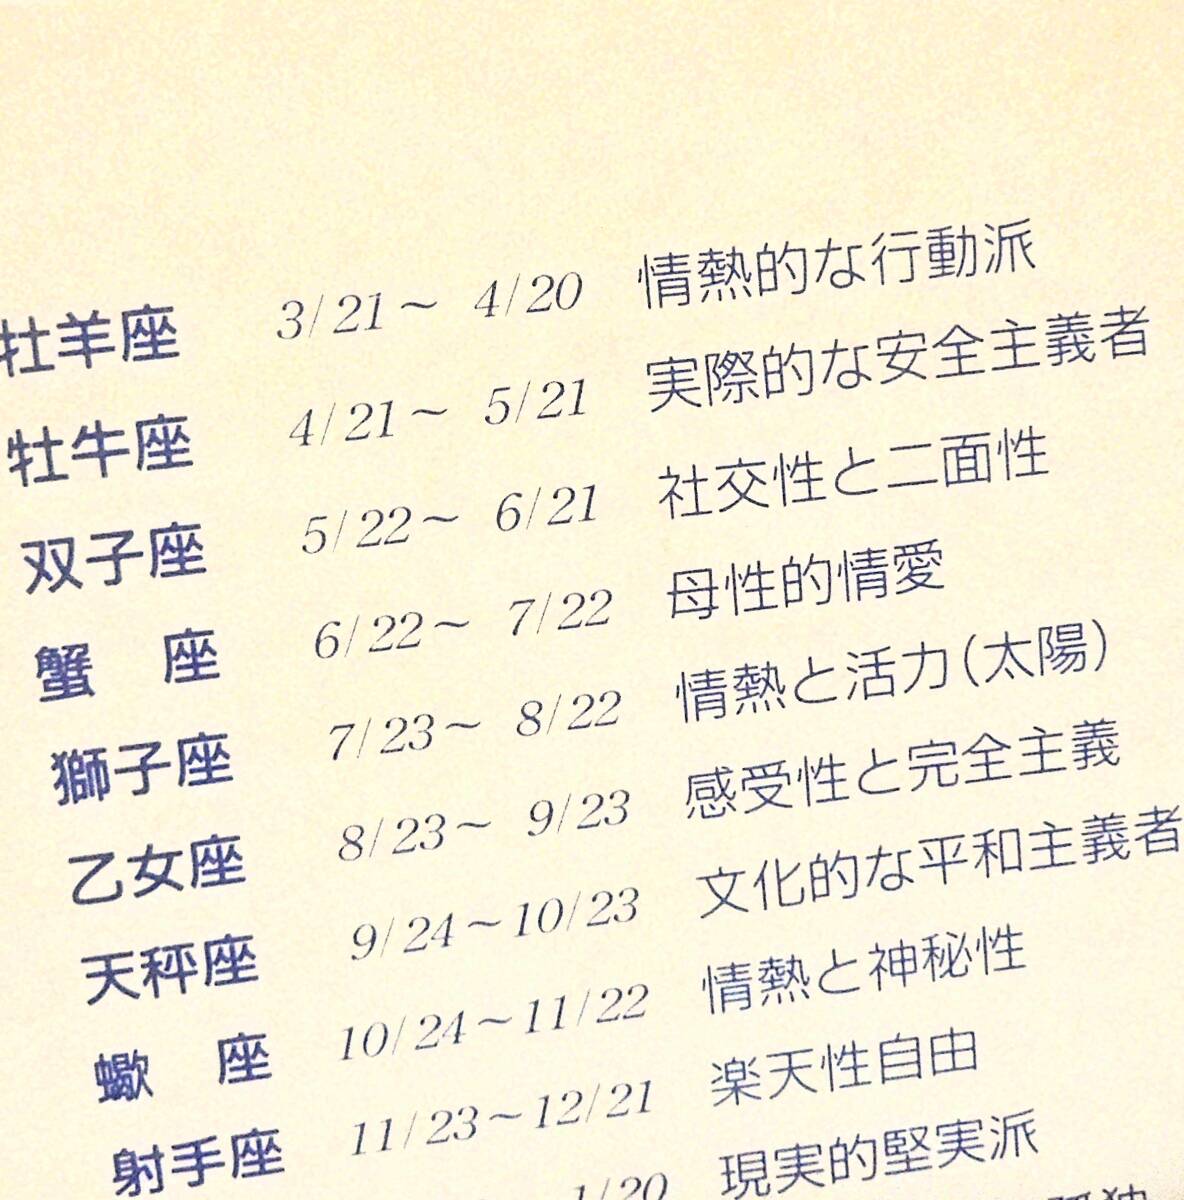 牡羊座 3/21～ 4/20 情熱的な行動派
牡牛座 4/21～ 5/21 実際的な安全主義者
双子座 5/22～ 6/21 社交性と二面性
蟹　座 6/22～ 7/22 母性的情愛
獅子座 7/23～ 8/22 情熱と活力(太陽)
乙女座 8/23～ 9/23 感受性と完全主義
天秤座 9/24～10/23 文化的な平和主義者
蠍　座 10/24～11/22 情熱と神秘性
射手座 11/23～12/21 楽天性自由
1/20 現実的堅実派